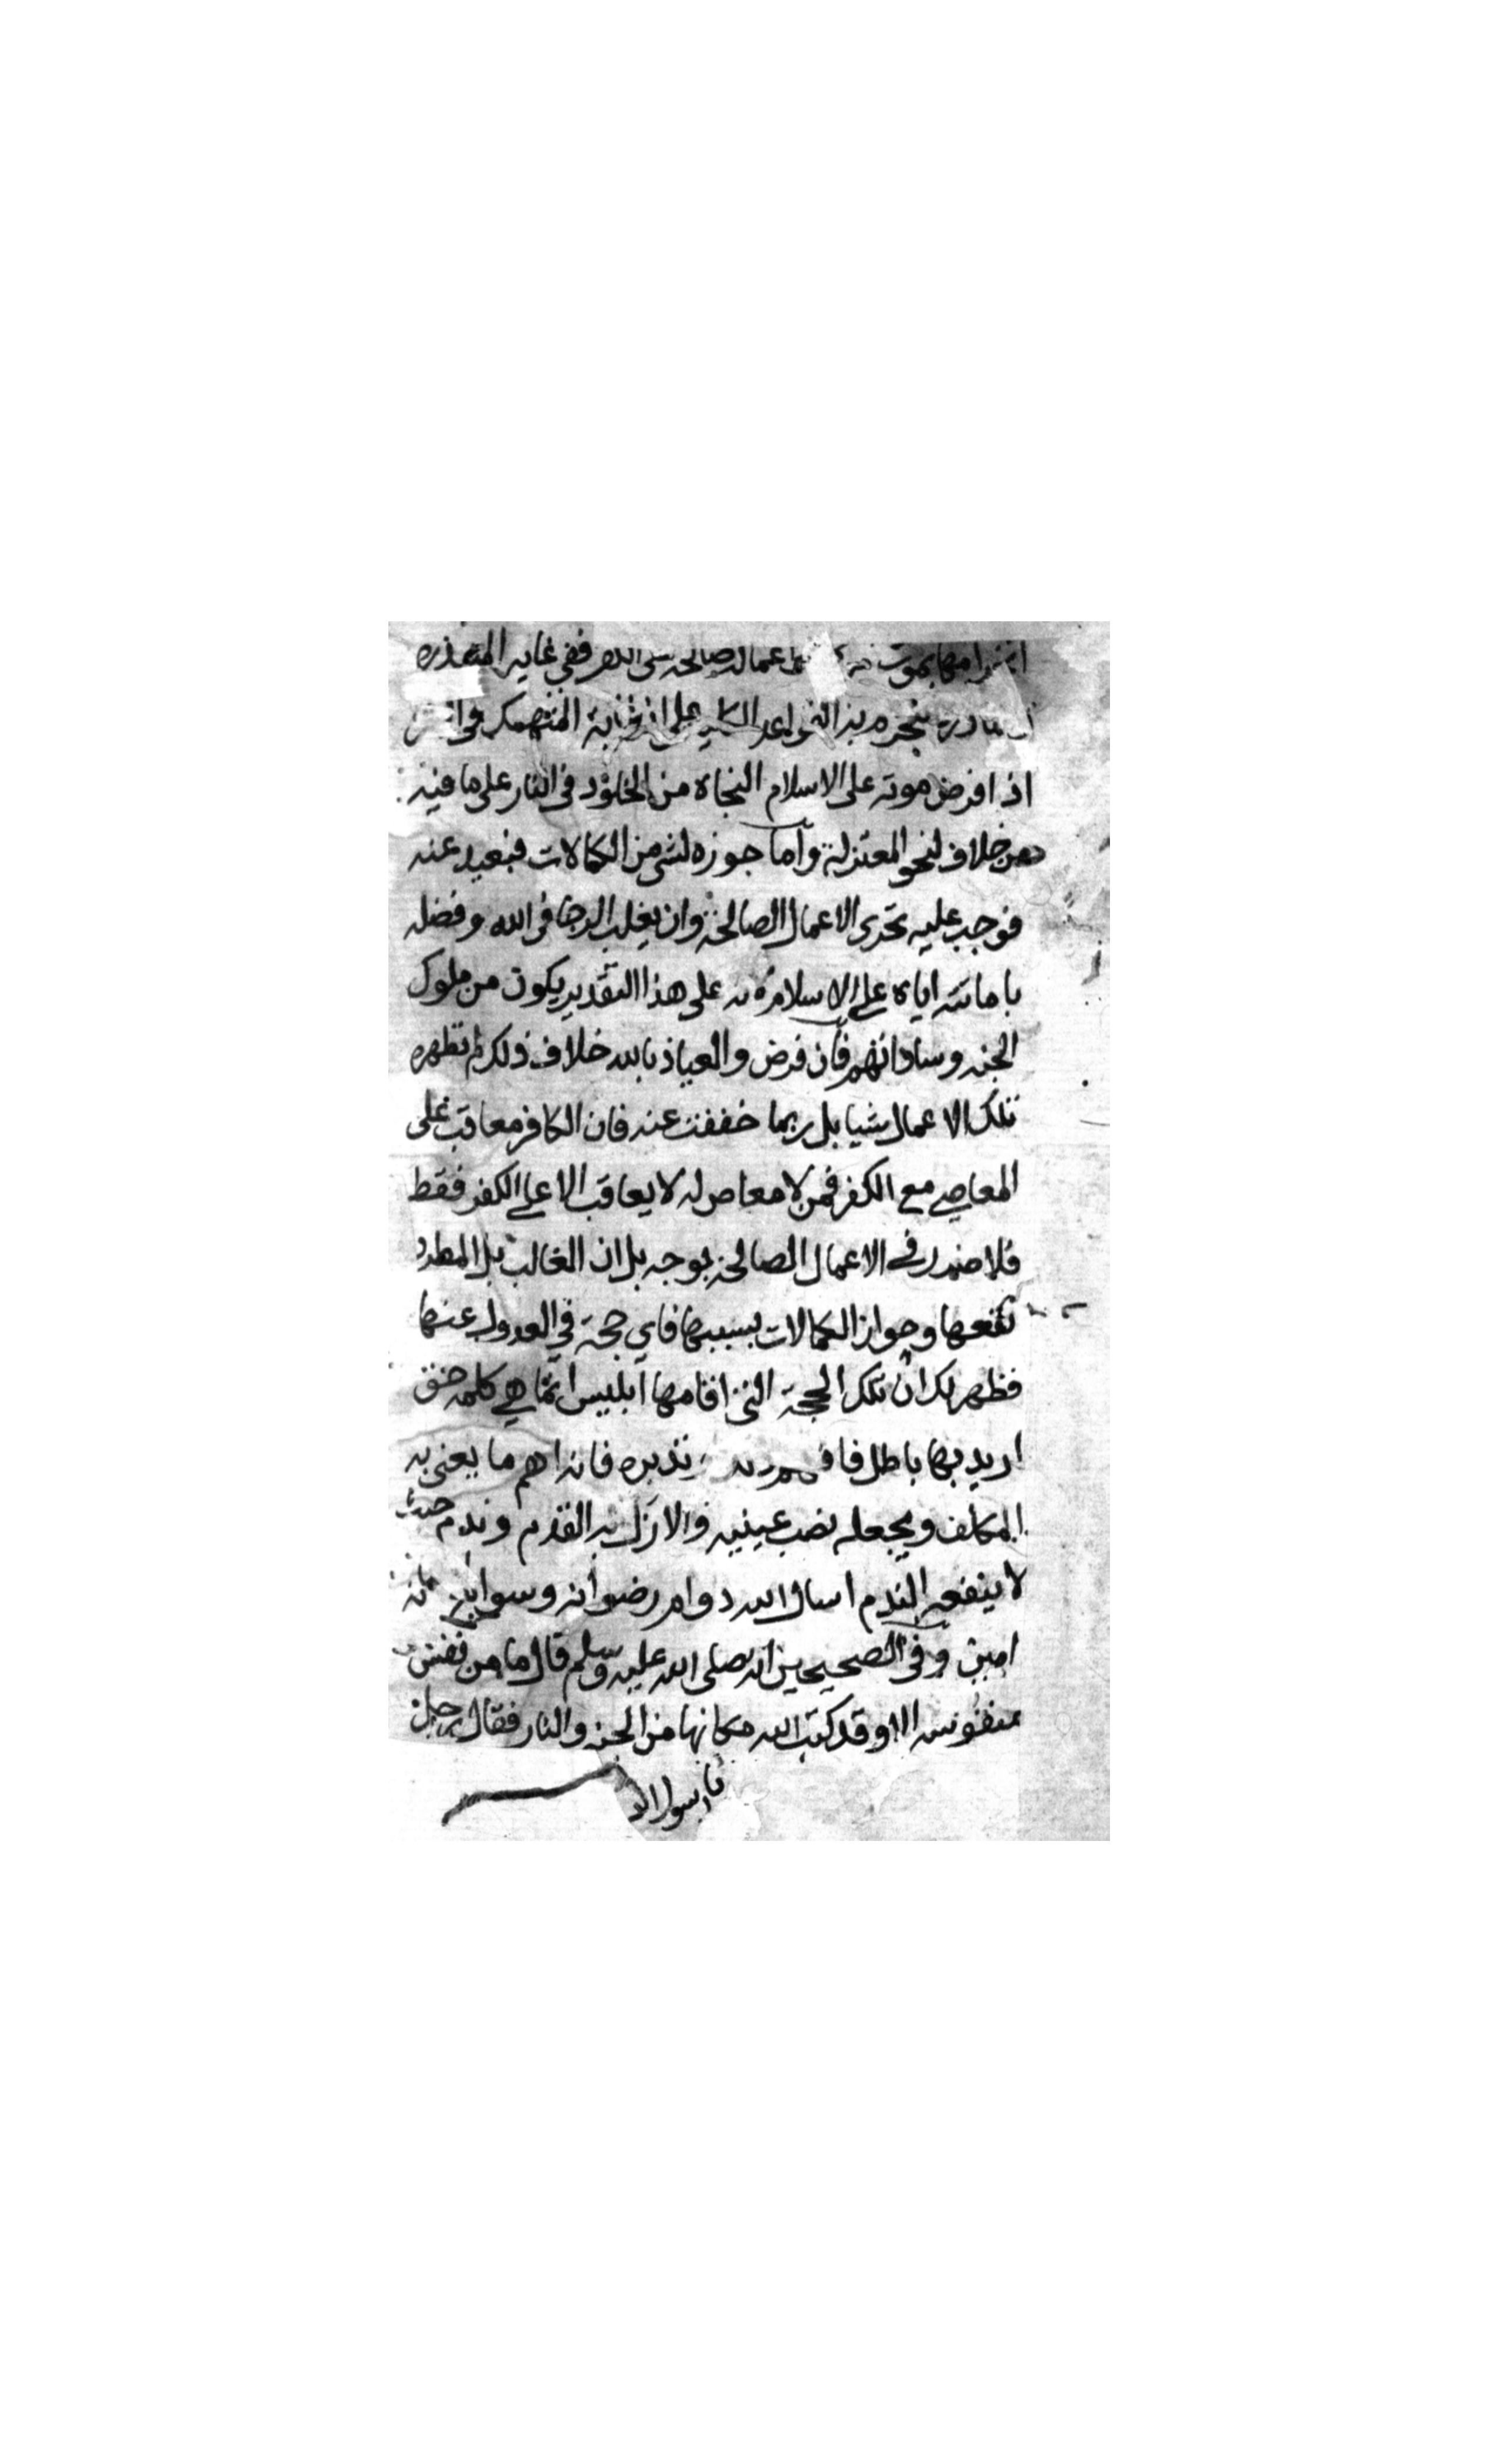 اعمال صالحه ففي غايه
على ان المنهمك في
اذا فرض موته على الاسلام النجاة من الخلود في النار على ما فيه
من خلاف لنحو المعتزلة واما جوزه لشي من الكمالات فبعيد عنه
فوجب عليه تحرى الاعمال الصالحة وان يغلب الرجا في الله وفضله
باماتته اياه على الاسلام على هذا التقدير يكون من ملوك
الجنه وساداتهم فان فرض والعياذ بالله خلاف ذلك لم تظهره
تلك الاعمال شيا بل ربما خففت عنه فان الكافر معاقب على
المعاصي مع الكفر فمن لا معاص له لا يعاقب الا على الكفر فقط
فلا ضرر في الاعمال الصالحة بوجه بل ان الغالب بل المطرد
نفعها وجواز الكمالات بسببها فاي حجة في العدول عنها
فظهر لك ان تلك الحجة التي اقامها ابليس انما هي كلمه حق
اريد بها باطل تدبره فانه اهم ما يعنى به
المكلف ويجعله نصب عينيه والا زل به القدم وندم حيث
لا ينفعه الندم اسال الله دوام رضوانه وسوابغ
امين وفي الصحيحين انه صلى الله عليه وسلم قال ما من نفس
منفوسه الا وقد كتب الله مكانها من الجنه والنار فقال رجل
يا رسول الله